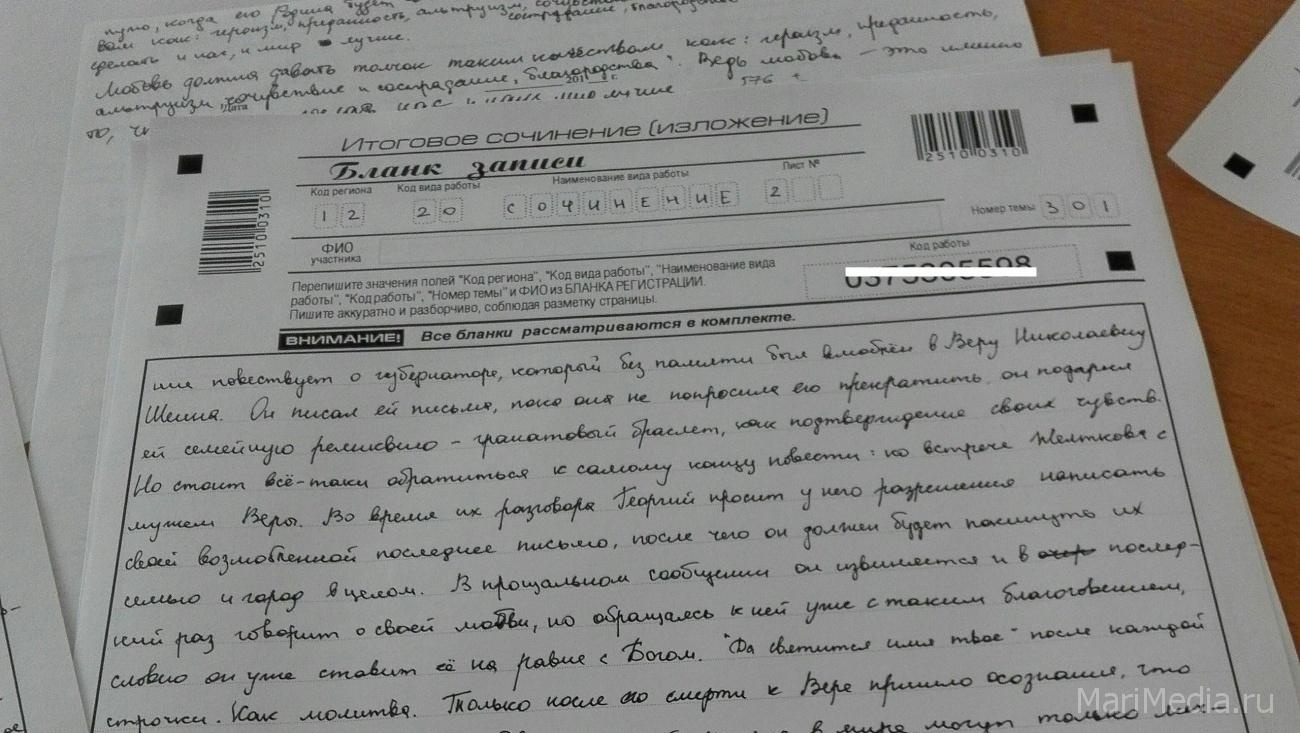 вам как: героизм, преданность, альтруизм,
сделать и нас, и мир лучше.
Любовь должна давать толчок таким качествам как: героизм, преданность,
альтруизм, сочувствие и сострадание, благородства. Ведь любовь – это именно
то,
576
Итоговое сочинение (изложение)
Бланк записи
Код региона Код вида работы Наименование вида работы Лист №
12 20 СОЧИНЕНИЕ 2
25100310
25100310
Номер темы 301
ФИО участника
Код работы
Перепишите значения полей "Код региона", "Код вида работы", "Наименование вида
работы", "Код работы", "Номер темы" и ФИО из БЛАНКА РЕГИСТРАЦИИ.
Пишите аккуратно и разборчиво, соблюдая разметку страницы.
ВНИМАНИЕ! Все бланки рассматриваются в комплекте.
ние повествует о губернаторе, который без памяти был влюблён в Веру Николаевну
Шеина. Он писал ей письма, пока она не попросила его прекратить, он подарил
ей семейную реликвию – гранатовый браслет, как подтверждение своих чувств.
Но стоит всё-таки обратиться к самому концу повести: ко встрече Желткова с
мужем Веры. Во время их разговора Георгий просит у него разрешения написать
своей возлюбленной последнее письмо, после чего он должен будет покинуть их
семью и город в целом. В прощальном сообщении он извиняется и в послед-
ний раз говорит о своей любви, но обращаясь к ней уже с таким благоговением,
словно он уже ставит её на равне с Богом. "Да святится имя твое" после каждой
строчки. Как молитва. Только после его смерти к Вере пришло осознание, что
в мире могут только
MariMedia.ru